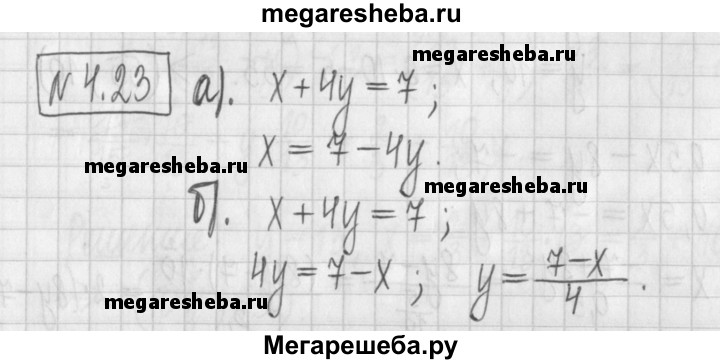 megaresheba.ru
№ 4.23 а). x + 4y = 7 ;
megaresheba.ru
x = 7 − 4y.
megaresheba.ru
megaresheba.ru
б). x + 4y = 7 ;
4y = 7 − x ; y = (7 − x)/4 .
megaresheba.ru
megaresheba.ru
Мегарешеба.ру